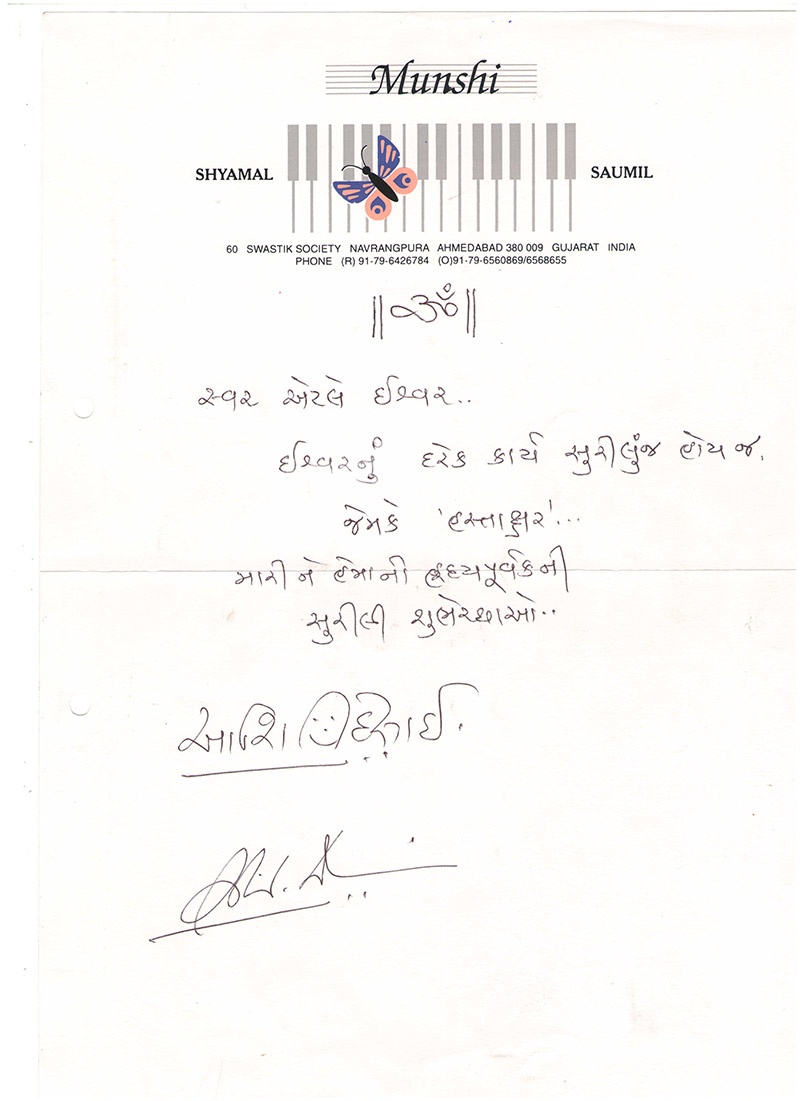 Munshi
SHYAMAL
SAUMIL
60 SWASTIK SOCIETY NAVRANGPURA AHMEDABAD 380 009 GUJARAT INDIA
PHONE (R) 91-79-6426784 (O)91-79-6560869/6568655
||ૐ||
સ્વર એટલે ઈશ્વર..
ઈશ્વરનું દરેક કાર્ય સુરીલુંજ હોય જ.
જેમકે 'હસ્તાક્ષર'...
મારી ને હેમાની હૃદયપૂર્વકની
સુરીલી શુભેચ્છાઓ..
આશિ દેસાઈ.